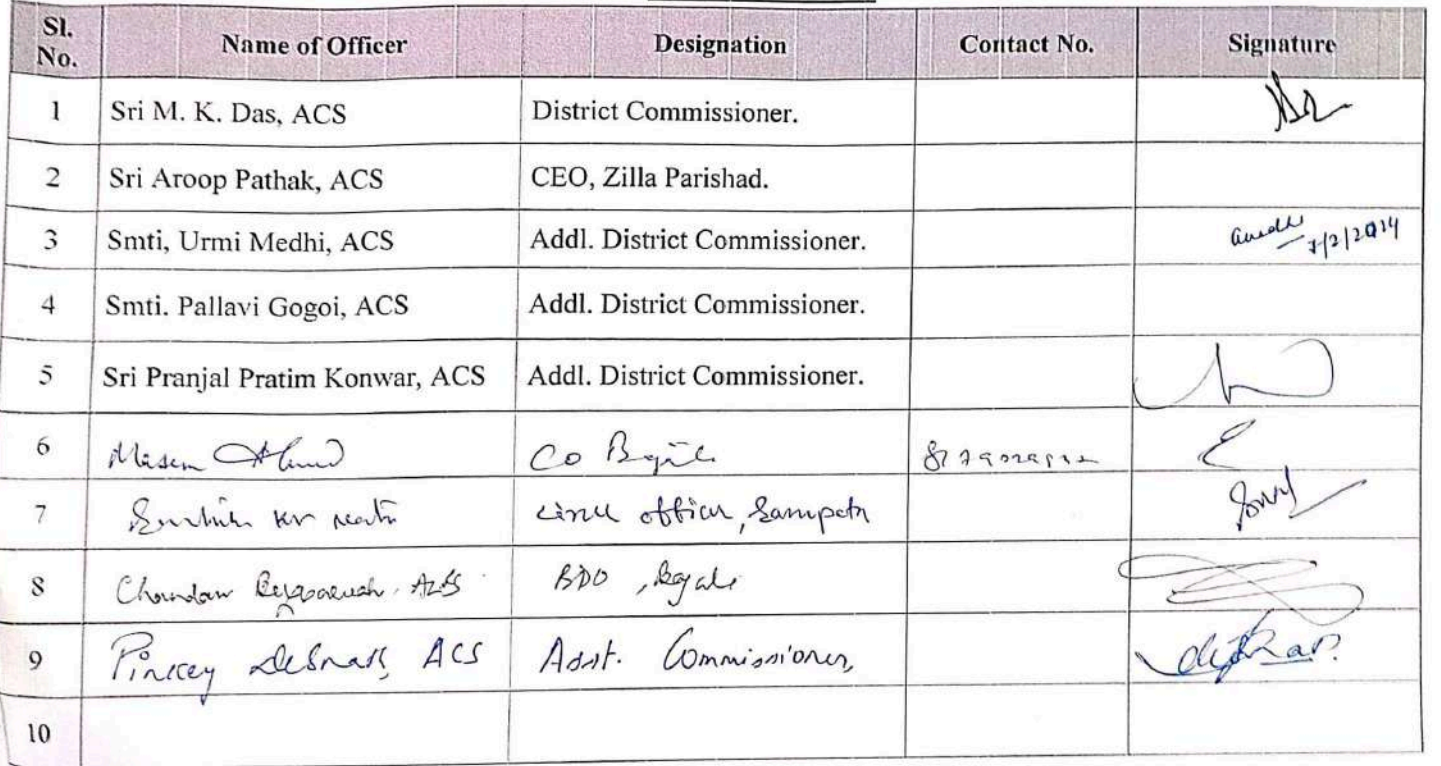 Sl. No. Name of Officer Designation Contact No. Signature
1 Sri M. K. Das, ACS District Commissioner.
2 Sri Aroop Pathak, ACS CEO, Zilla Parishad.
3 Smti, Urmi Medhi, ACS Addl. District Commissioner.
4 Smti. Pallavi Gogoi, ACS Addl. District Commissioner.
5 Sri Pranjal Pratim Konwar, ACS Addl. District Commissioner.
6 CO
7 Kr officer,
8 Chandan BDO,
9 Pinkey Debnath, ACS Asst. Commissioner,
10